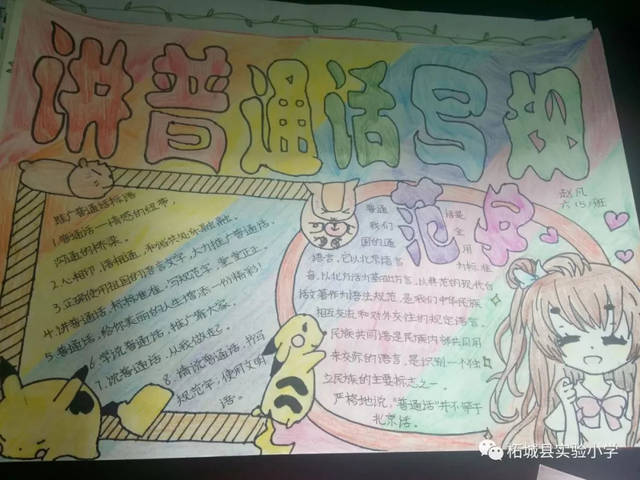 讲普通话写
范字
赵凡
六(5)班
推广普通话标语
1.普通话——情感的纽带,
沟通的桥梁。
2.心相印,语相通,和谐共处乐融融。
3.正确使用祖国的语言文字,大力推广普通话。
4.讲普通话,
5.普通话,给你美丽的人生增添一份精彩!
6.学说普通话,推广靠大家。
7.说普通话,从我做起。
8.请说普通话,书写
规范字,使用文明
语。
普通话是
我们全
国的通用
语言,它以北京语言为标准
音,以北方话为基础方言,以典范的现代白
话文著作为语法规范,是我们中华民族
相互交流和对外交往的规定语言。
民族共同语是民族内部共同用
来交际的语言,是识别一个独
立民族的主要标志之一。
严格地说,“普通话”并不等于
北京话。
柘城县实验小学